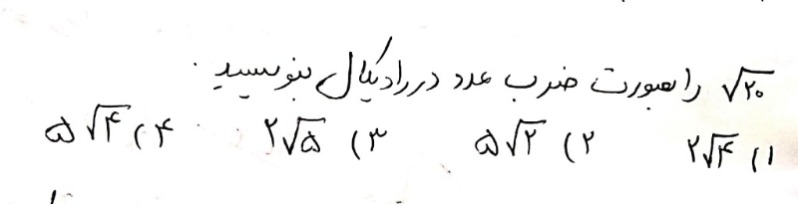 √۲۰ را بصورت ضرب عدد در رادیکال بنویسید.
۱) ۲√۴ ۲) ۵√۲ ۳) ۲√۵ ۴) ۵√۴